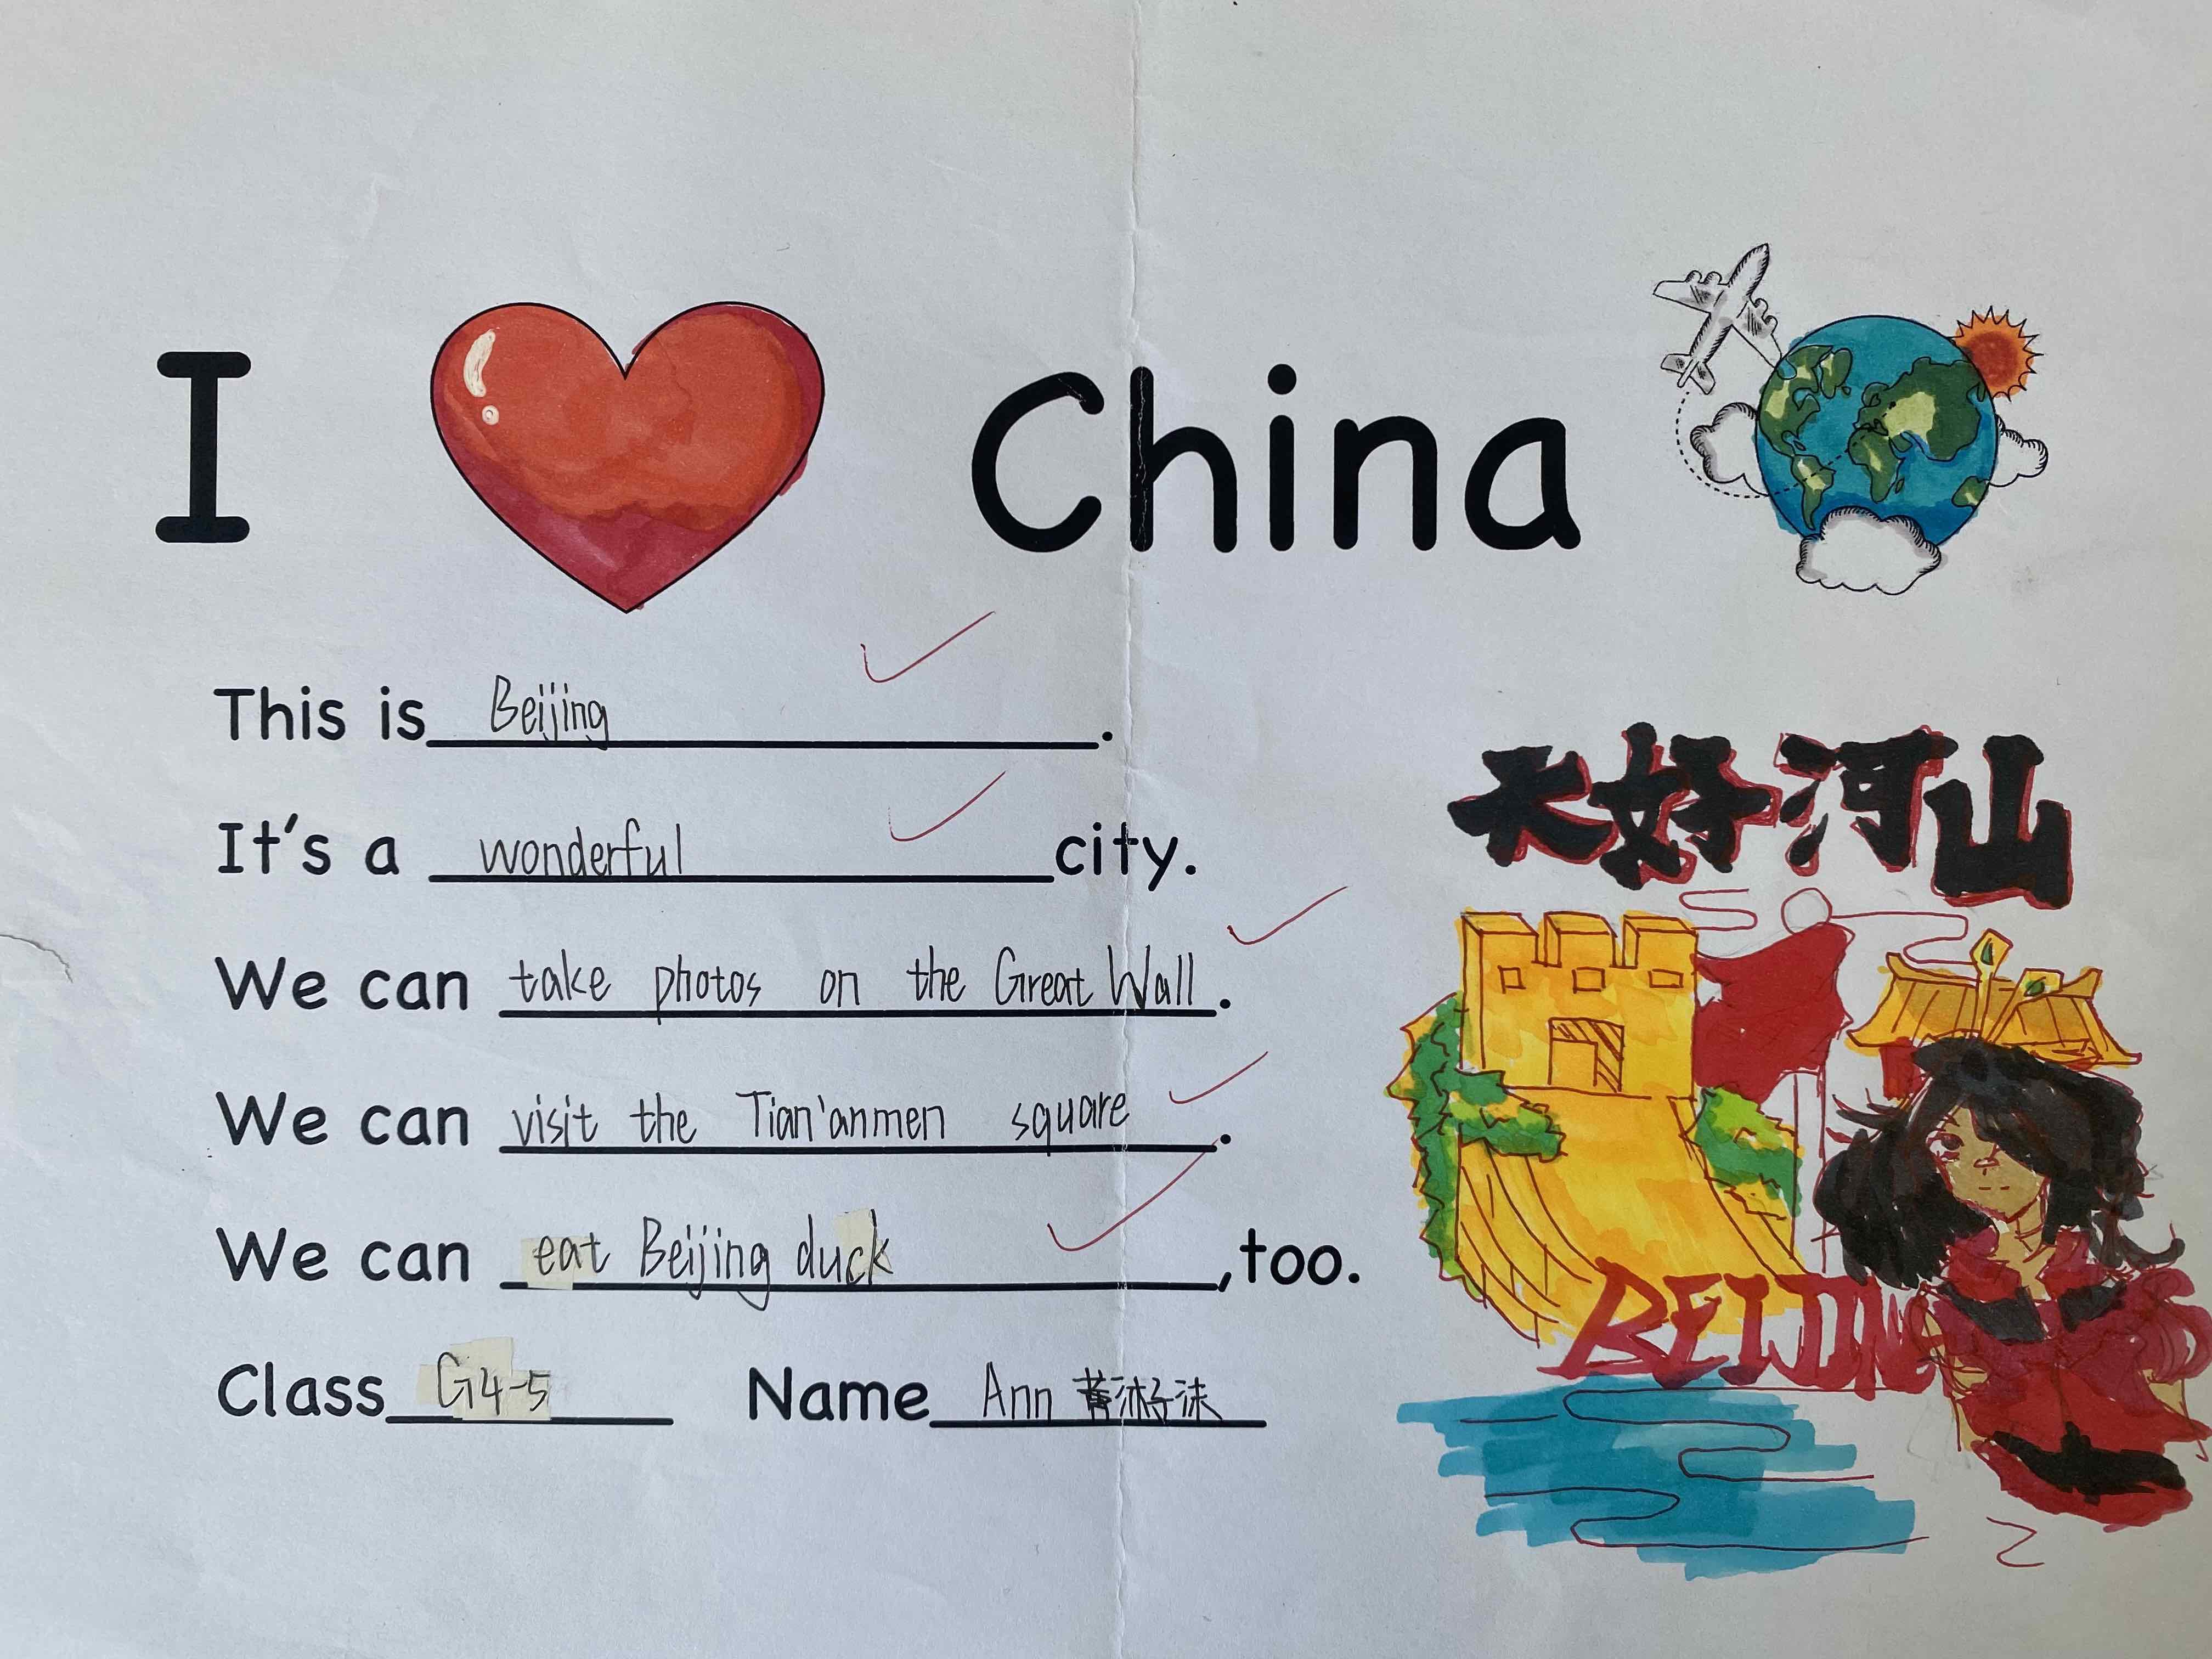 I China
This is Beijing.
It's a wonderful city.
We can take photos on the Great Wall.
We can visit the Tian'anmen square.
We can eat Beijing duck, too.
Class G4-5 Name Ann
大好河山
BEIJING